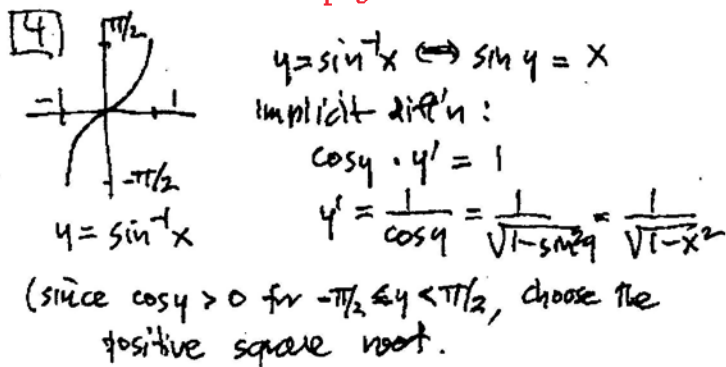 4
π/2
-1
1
-π/2
y = sin⁻¹x
y = sin⁻¹x ⟺ sin y = x
implicit diff'n :
cos y · y' = 1
y' = 1/cos y = 1/√(1-sin²y) = 1/√(1-x²)
(since cos y > 0 for -π/2 ≤ y < π/2, choose the
positive square root.